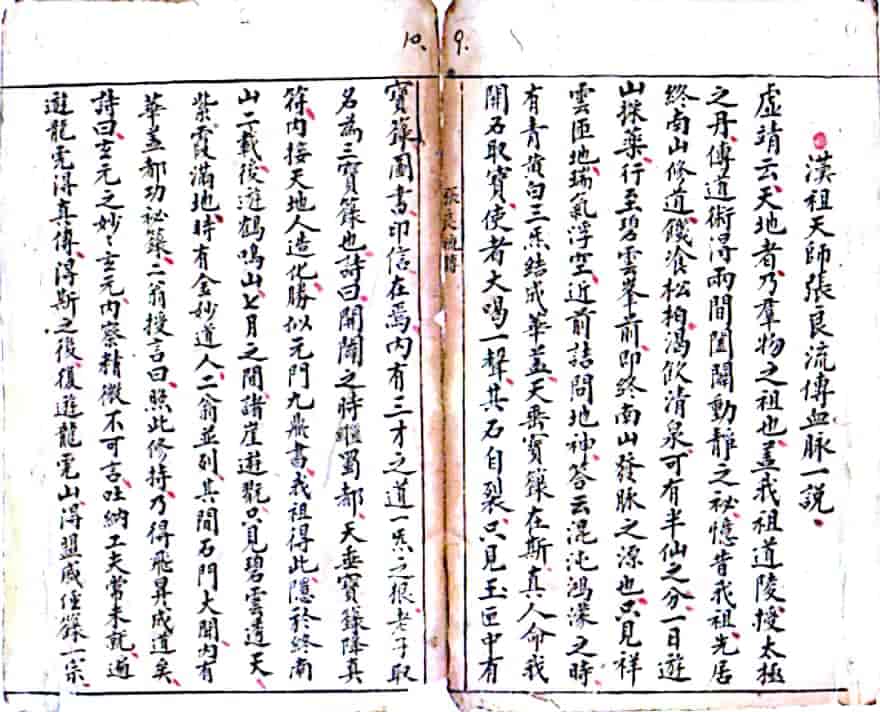 漢祖天師張良流傳血脉一説、
虛靖云、天地者、乃羣物之祖也、蓋我祖道陵、授太極
之丹、傳道術、得兩間闔闢動靜之秘、憶昔我祖、先居
終南山修道、饑飡松柏、渴飲清泉、可有半仙之分、一日遊
山採藥、行至碧雲峯前、即終南山發脉之源也、只見祥
雲匝地、瑞氣浮空、近前詰問地神、答云混沌鴻濛之時、
有青黃白三炁結成華蓋、天垂寶籙在斯、真人命我
開石取寶、使者大喝一聲、其石自裂、只見玉匣中有
寶籙圖書、印信在焉、內有三才之道一炁之根、老子取
名為三寶籙也、詩曰、開闢之時 蜀都、天垂寶籙降真
符、內接天地人造化、勝似元門九鼎書、我祖得此、隱於終南
山二載、後遊鶴鳴山、七月之間、諸崖遊翫、只見碧雲遶天、
紫霞滿地、時有金妙道人二翁並列、其間石門大開、內有
華蓋都功祕籙、二翁授言曰、照此修持、乃得飛昇成道矣、
詩曰、玄元之妙〻玄元、內察精微不可言、吐納工夫常未就、遍
遊龍虎得真傳、得斯之後、復遊龍虎山、得盟威經籙一宗
張良流傳
9.
10.